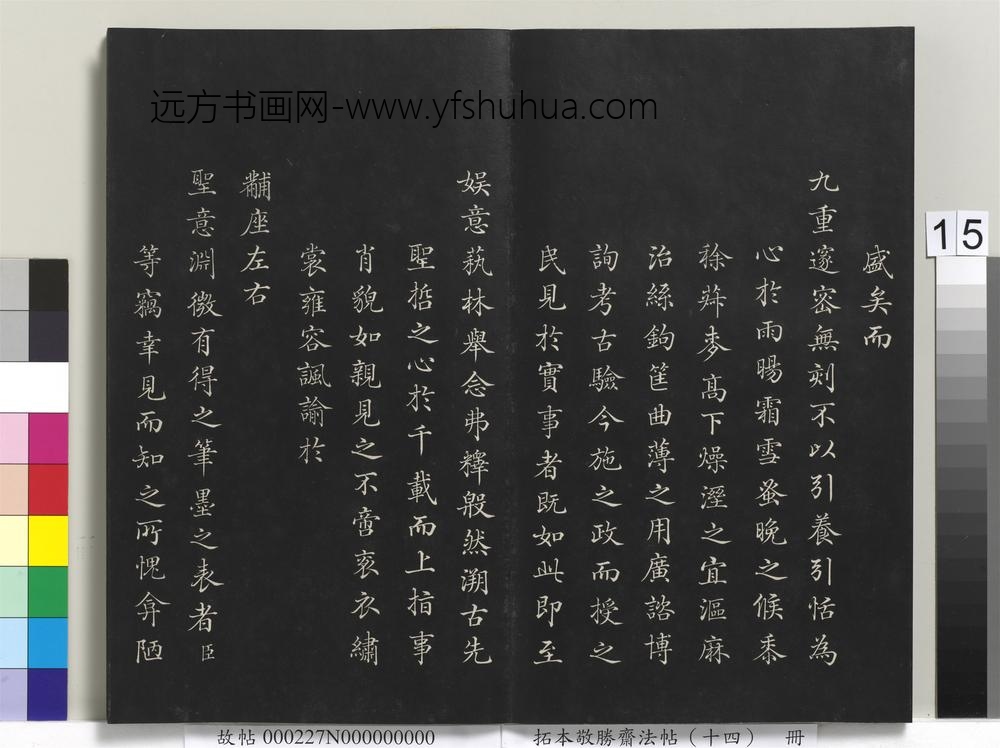 远方书画网-www.yfshuhua.com
盛矣而
九重邃密無刻不以引養引恬為
心於雨暘霜雪蚤晚之候黍
稌麰麥高下燥溼之宜漚麻
治絲鉤筐曲薄之用廣諮博
詢考古驗今施之政而授之
民見於實事者既如此即至
娛意蓺林舉念弗釋殷然溯古先
聖哲之心於千載而上指事
肖貌如親見之不啻袞衣繡
裳雍容諷諭於
黼座左右
聖意淵微有得之筆墨之表者臣
等竊幸見而知之所愧弇陋
15
故帖 000227N000000000
拓本敬勝齋法帖（十四） 冊